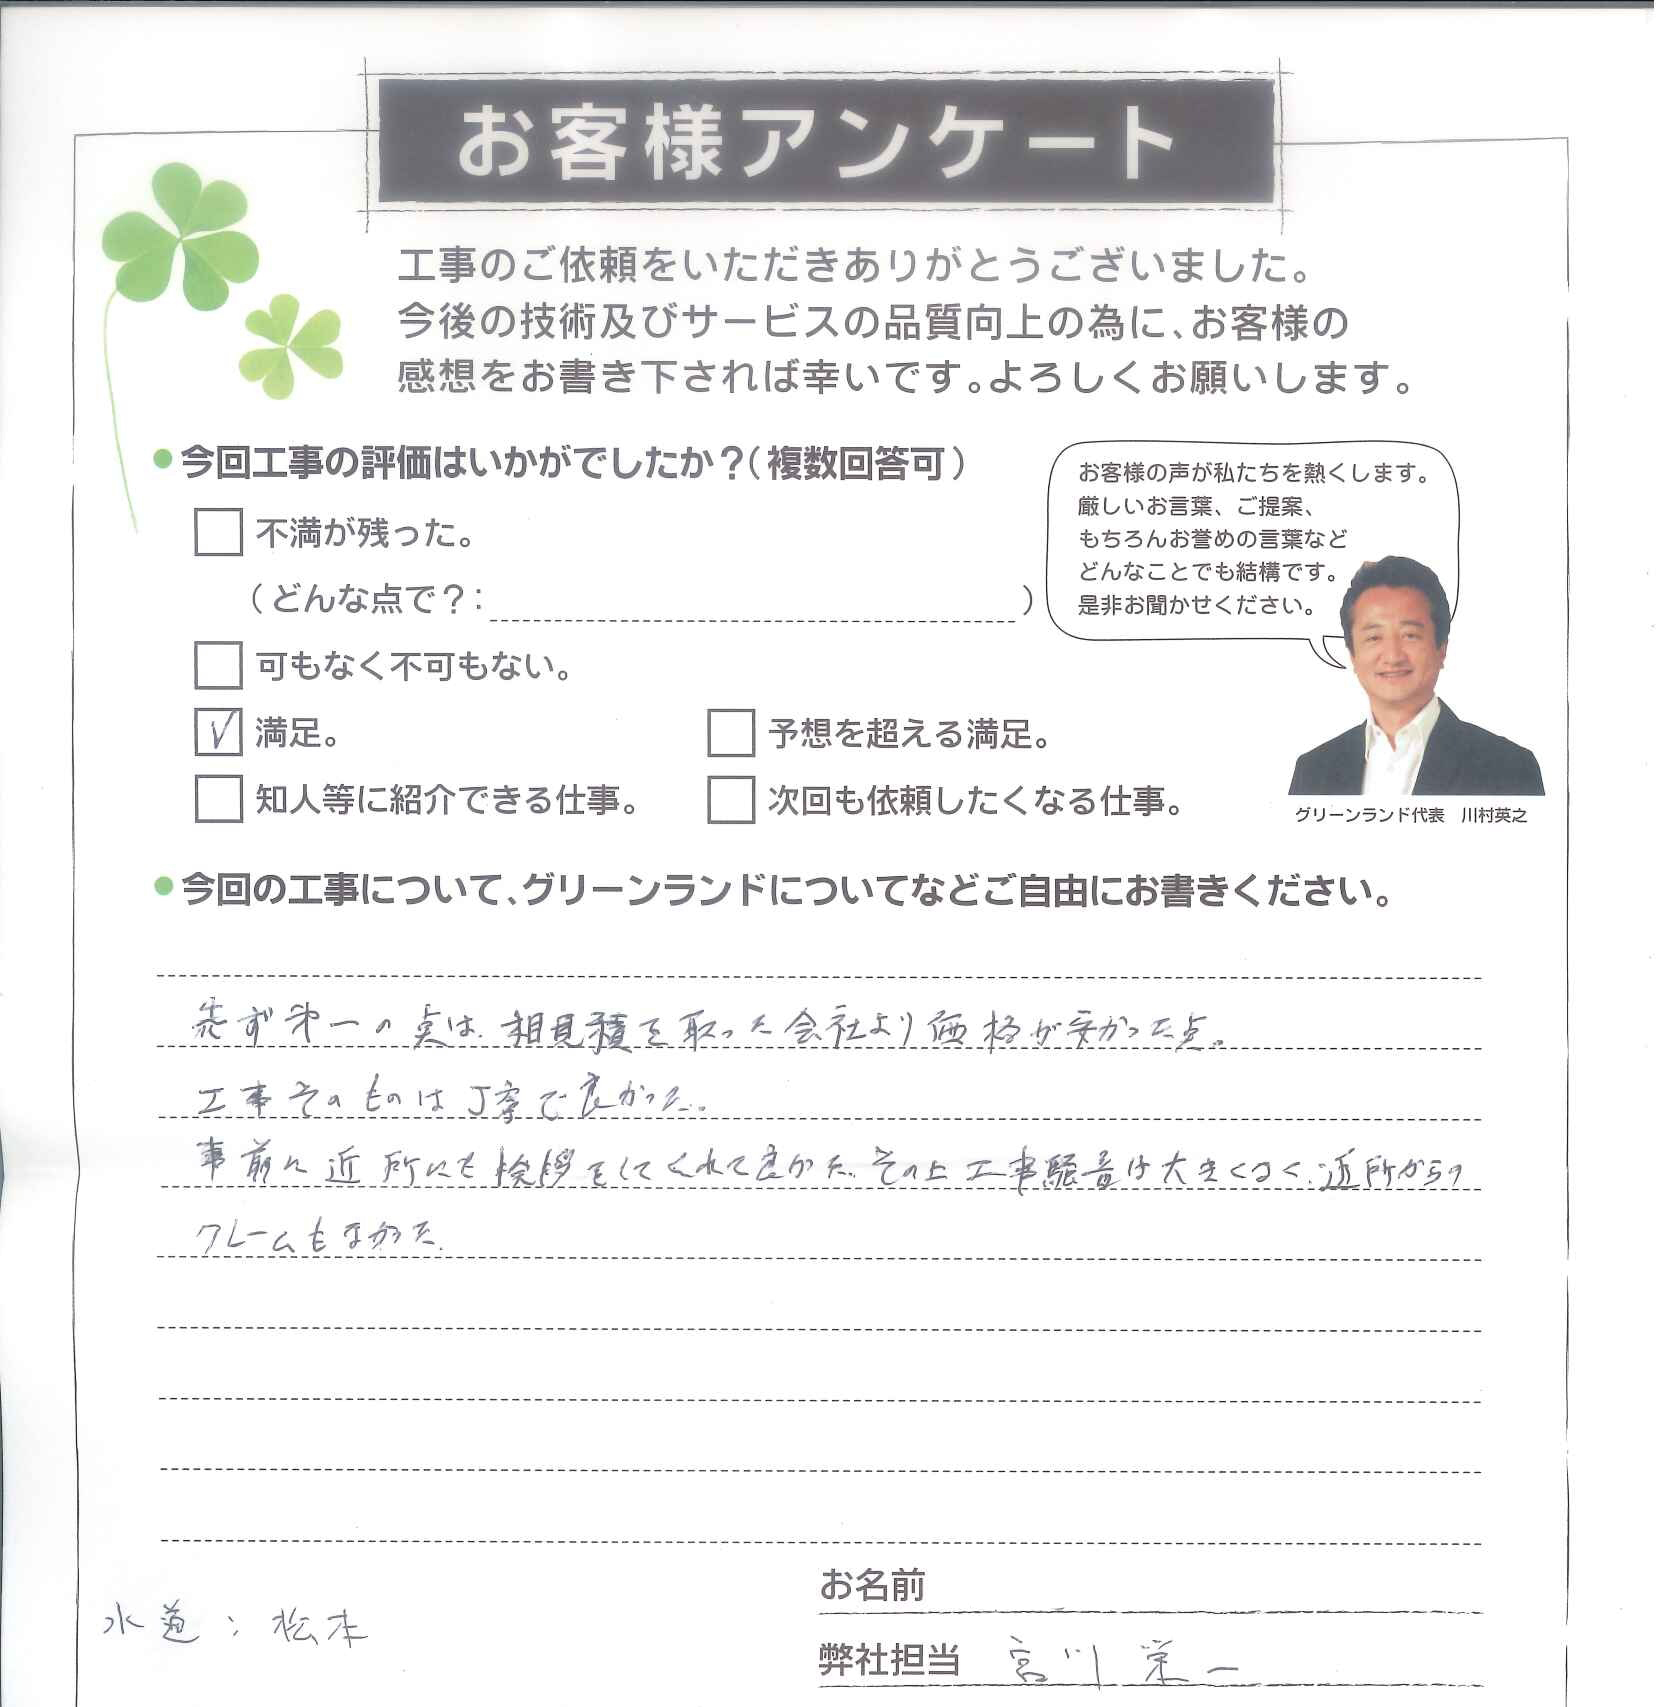 お客様アンケート
工事のご依頼をいただきありがとうございました。
今後の技術及びサービスの品質向上の為に、お客様の
感想をお書き下されば幸いです。よろしくお願いします。
●今回工事の評価はいかがでしたか？（複数回答可）
不満が残った。
（どんな点で？：　）
可もなく不可もない。
満足。
予想を超える満足。
知人等に紹介できる仕事。
次回も依頼したくなる仕事。
お客様の声が私たちを熱くします。
厳しいお言葉、ご提案、
もちろんお誉めの言葉など
どんなことでも結構です。
是非お聞かせください。
グリーンランド代表　川村英之
●今回の工事について、グリーンランドについてなどご自由にお書きください。
先ず第一の点は、相見積を取った会社より価格が安かった点。
工事そのものは丁寧で良かった。
事前に近所にも挨拶をしてくれて良かた。その上工事騒音は大きくなく、近所からの
クレームもなかった。
水道：松本
お名前
弊社担当　宮川 栄一